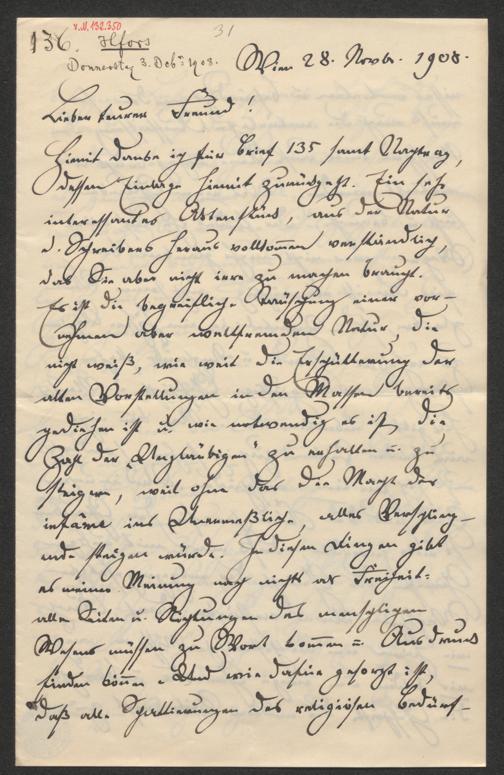 V.N. 132.350
31
136. Ilfors
Donnerstag 3. Debr 1908.
Wien 28. Novbr. 1908.
Lieber teurer Freund!
Hiemit danke ich für Brief 135 samt Nachtrag,
dessen Einlage hiemit zurückgeht. Ein sehr
interessantes Aktenstück, aus der Natur
d. Schreibens heraus vollkommen verständlich,
das Sie aber nicht irre zu machen braucht.
Es ist die begreifliche Täuschung einer vor-
nehmen aber weltfremden Natur, die
nicht weiß, wie weit die Erschütterung der
alten Vorstellungen in den Massen bereits
gediehen ist u. wie notwendig es ist, die
Zahl der „Ungläubigen" zu erhalten u. zu
steigern, weil ohne das die Macht der
infâme ins Unermeßliche, alles Verschling-
ende steigen würde. In diesen Dingen gibt
es meiner Meinung nach nichts als Freiheit:
alle Seiten u. Richtungen des menschlichen
Wesens müssen zu Wort kommen u. Ausdruck
finden können. Und wie dafür gesorgt ist,
daß alle Schattierungen des religiösen Bedürf-